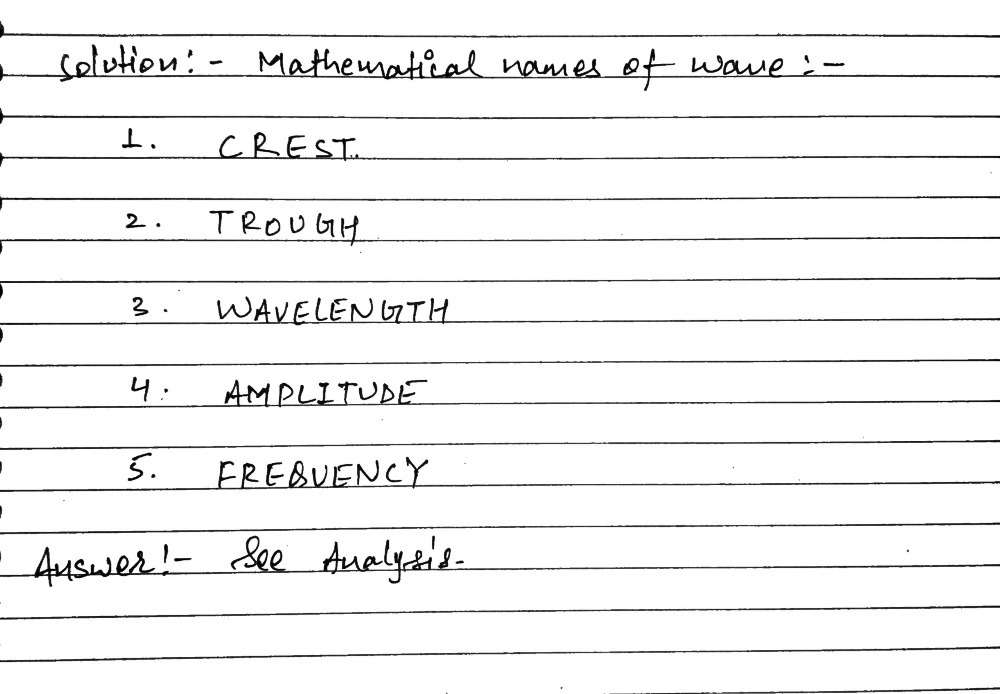 Solution:- Mathematical names of wave:-
1. CREST.
2. TROUGH
3. WAVELENGTH
4. AMPLITUDE
5. FREQUENCY
Answer:- See Analysis.